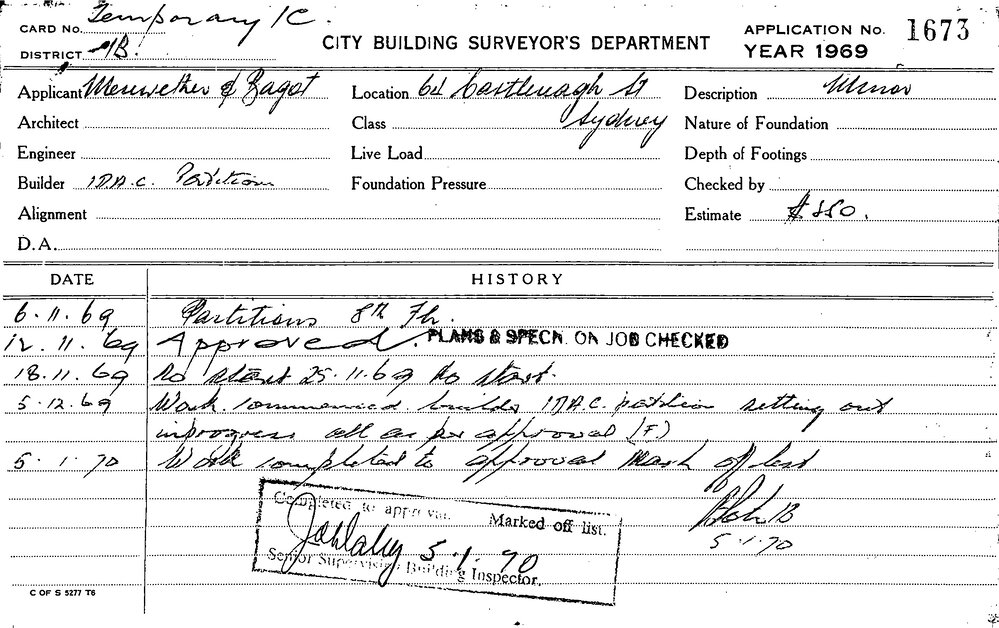 CARD No. Temporary /C.
DISTRICT /B.
CITY BUILDING SURVEYOR'S DEPARTMENT
APPLICATION No. 1673
YEAR 1969
Applicant Merewether & Bagot
Location 64 Castlereagh St
Sydney
Description Minor
Architect
Class
Nature of Foundation
Engineer
Live Load
Depth of Footings
Builder I.D.A.C. Partitions
Foundation Pressure
Checked by
Alignment
Estimate $550.
D.A.
DATE HISTORY
6.11.69 Partitions 8th Flr.
12.11.69 Approved. PLANS & SPECN. ON JOB CHECKED
18.11.69 No start 25.11.69 No start.
5.12.69 Work commenced builds I.D.A.C. partition setting out
in progress all as per approval (F)
5.1.70 Work completed to approval Mark off list
5.1.70
Completed to approval. Marked off list.
5.1.70
Senior Supervising Building Inspector.
C OF S 5277 T6